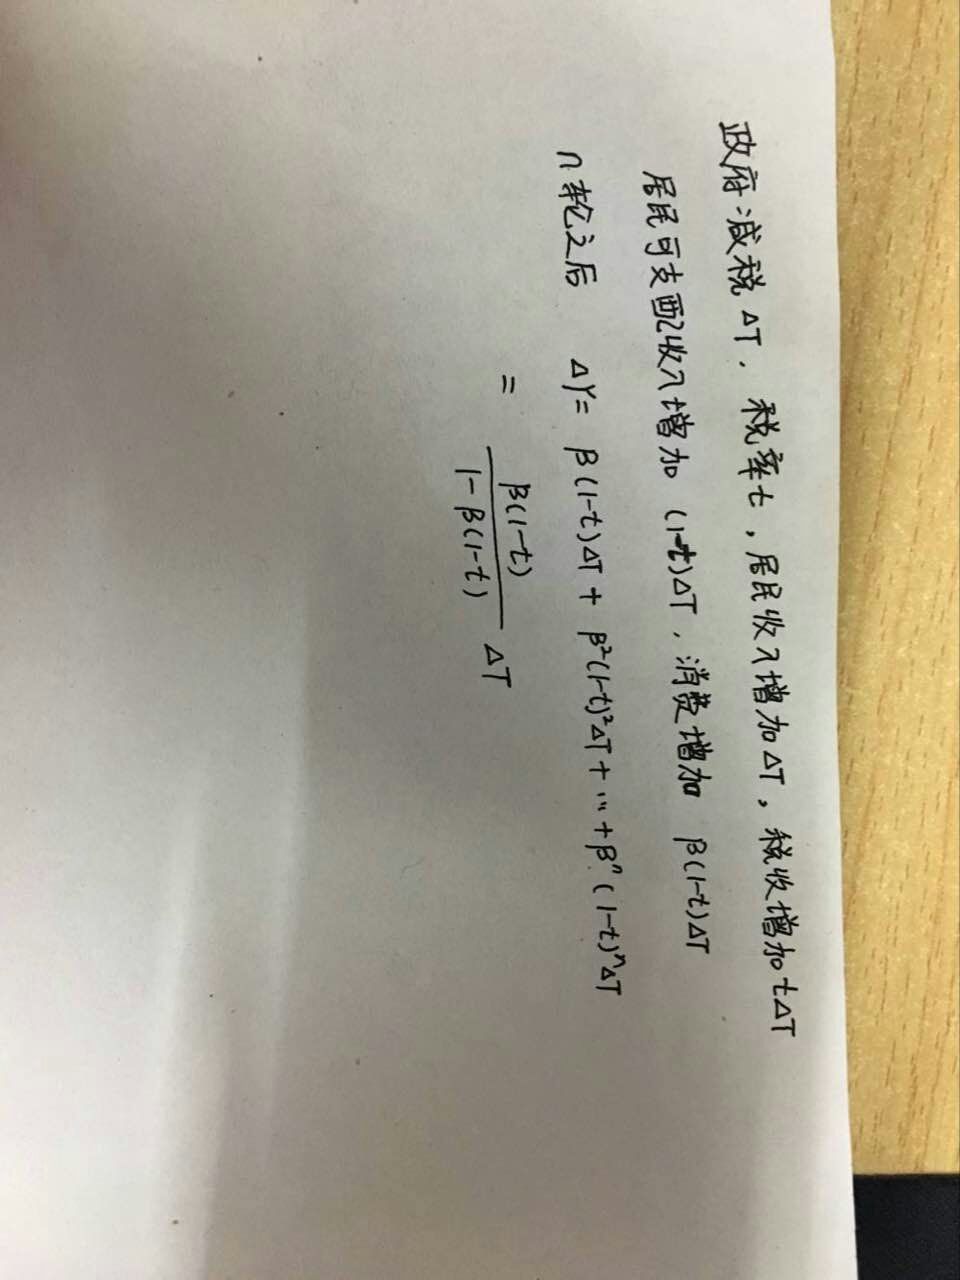 政府减税 ΔT，税率t，居民收入增加ΔT，税收增加tΔT
居民可支配收入增加 (1-t)ΔT，消费增加 β(1-t)ΔT
n轮之后 ΔY= β(1-t)ΔT + β²(1-t)²ΔT + … + βⁿ(1-t)ⁿΔT
= β(1-t) / 1-β(1-t) ΔT